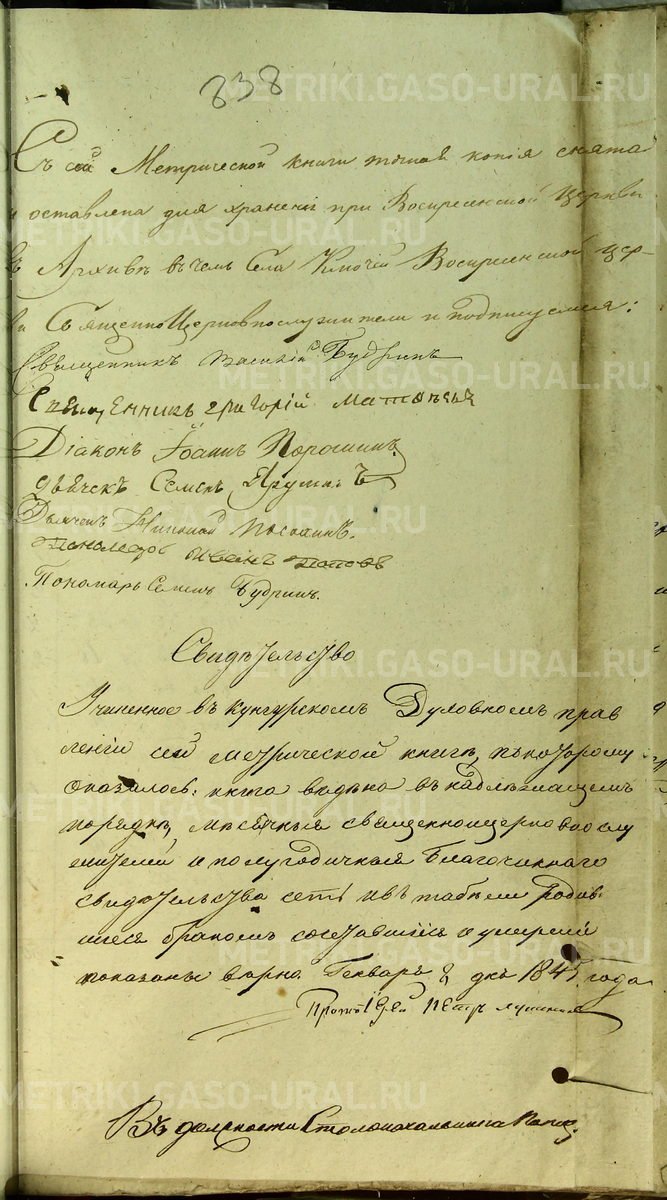 838
METRIKI.GASO-URAL.RU
Съ сей Метрической книги точная копія снята
и оставлена для храненія при Воскресенской Церкви
въ Архивѣ въ чемъ Села Ключей Воскресенской цер-
ви Священноцерковнослужители и подписуемся:
Священникъ Василій Будринъ
Священникъ григорій Матвѣевъ
Діаконъ Іоаннъ Порошинъ
дьячекъ Семенъ
Дьячекъ Николай
Пономарь Иванъ Поповъ
Пономарь Семенъ Будринъ.
Свидѣтельство
Учиненное въ Кунгурскомъ Духовномъ прав
леніи сей метрической книги, по которому
оказалось: книга ведена въ надлежащемъ
порядкѣ, мѣсячныя священноцерковнослу
жителей и полугодичныя Благочиннаго
свидѣтельства есть и въ табели родив
шіеся бракомъ сочетавшіеся и умершіе
показаны верно. Генваря 8 дня 1845 года
Протоіерей Петръ
Въ должности Столоначальника Попов